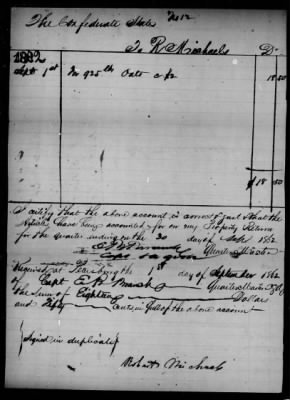 The Confederate States No 12
To R Michaels Dr
1862
Sept 1st 925 lbs Oats c $2 18.50
$18 50
I certify that the above account is correct & just & that the
Articles have been accounted for on my Property Return
for the quarter ending on the 30 day of Sept 1862
Capt & a qrm Quarter Master
Received at the 1st day of September 1862
of Capt E Quarter Master
the Sum of Eighteen Dollars
and Fifty Cents in full of the above account
Signed in duplicate
Robert Michaels